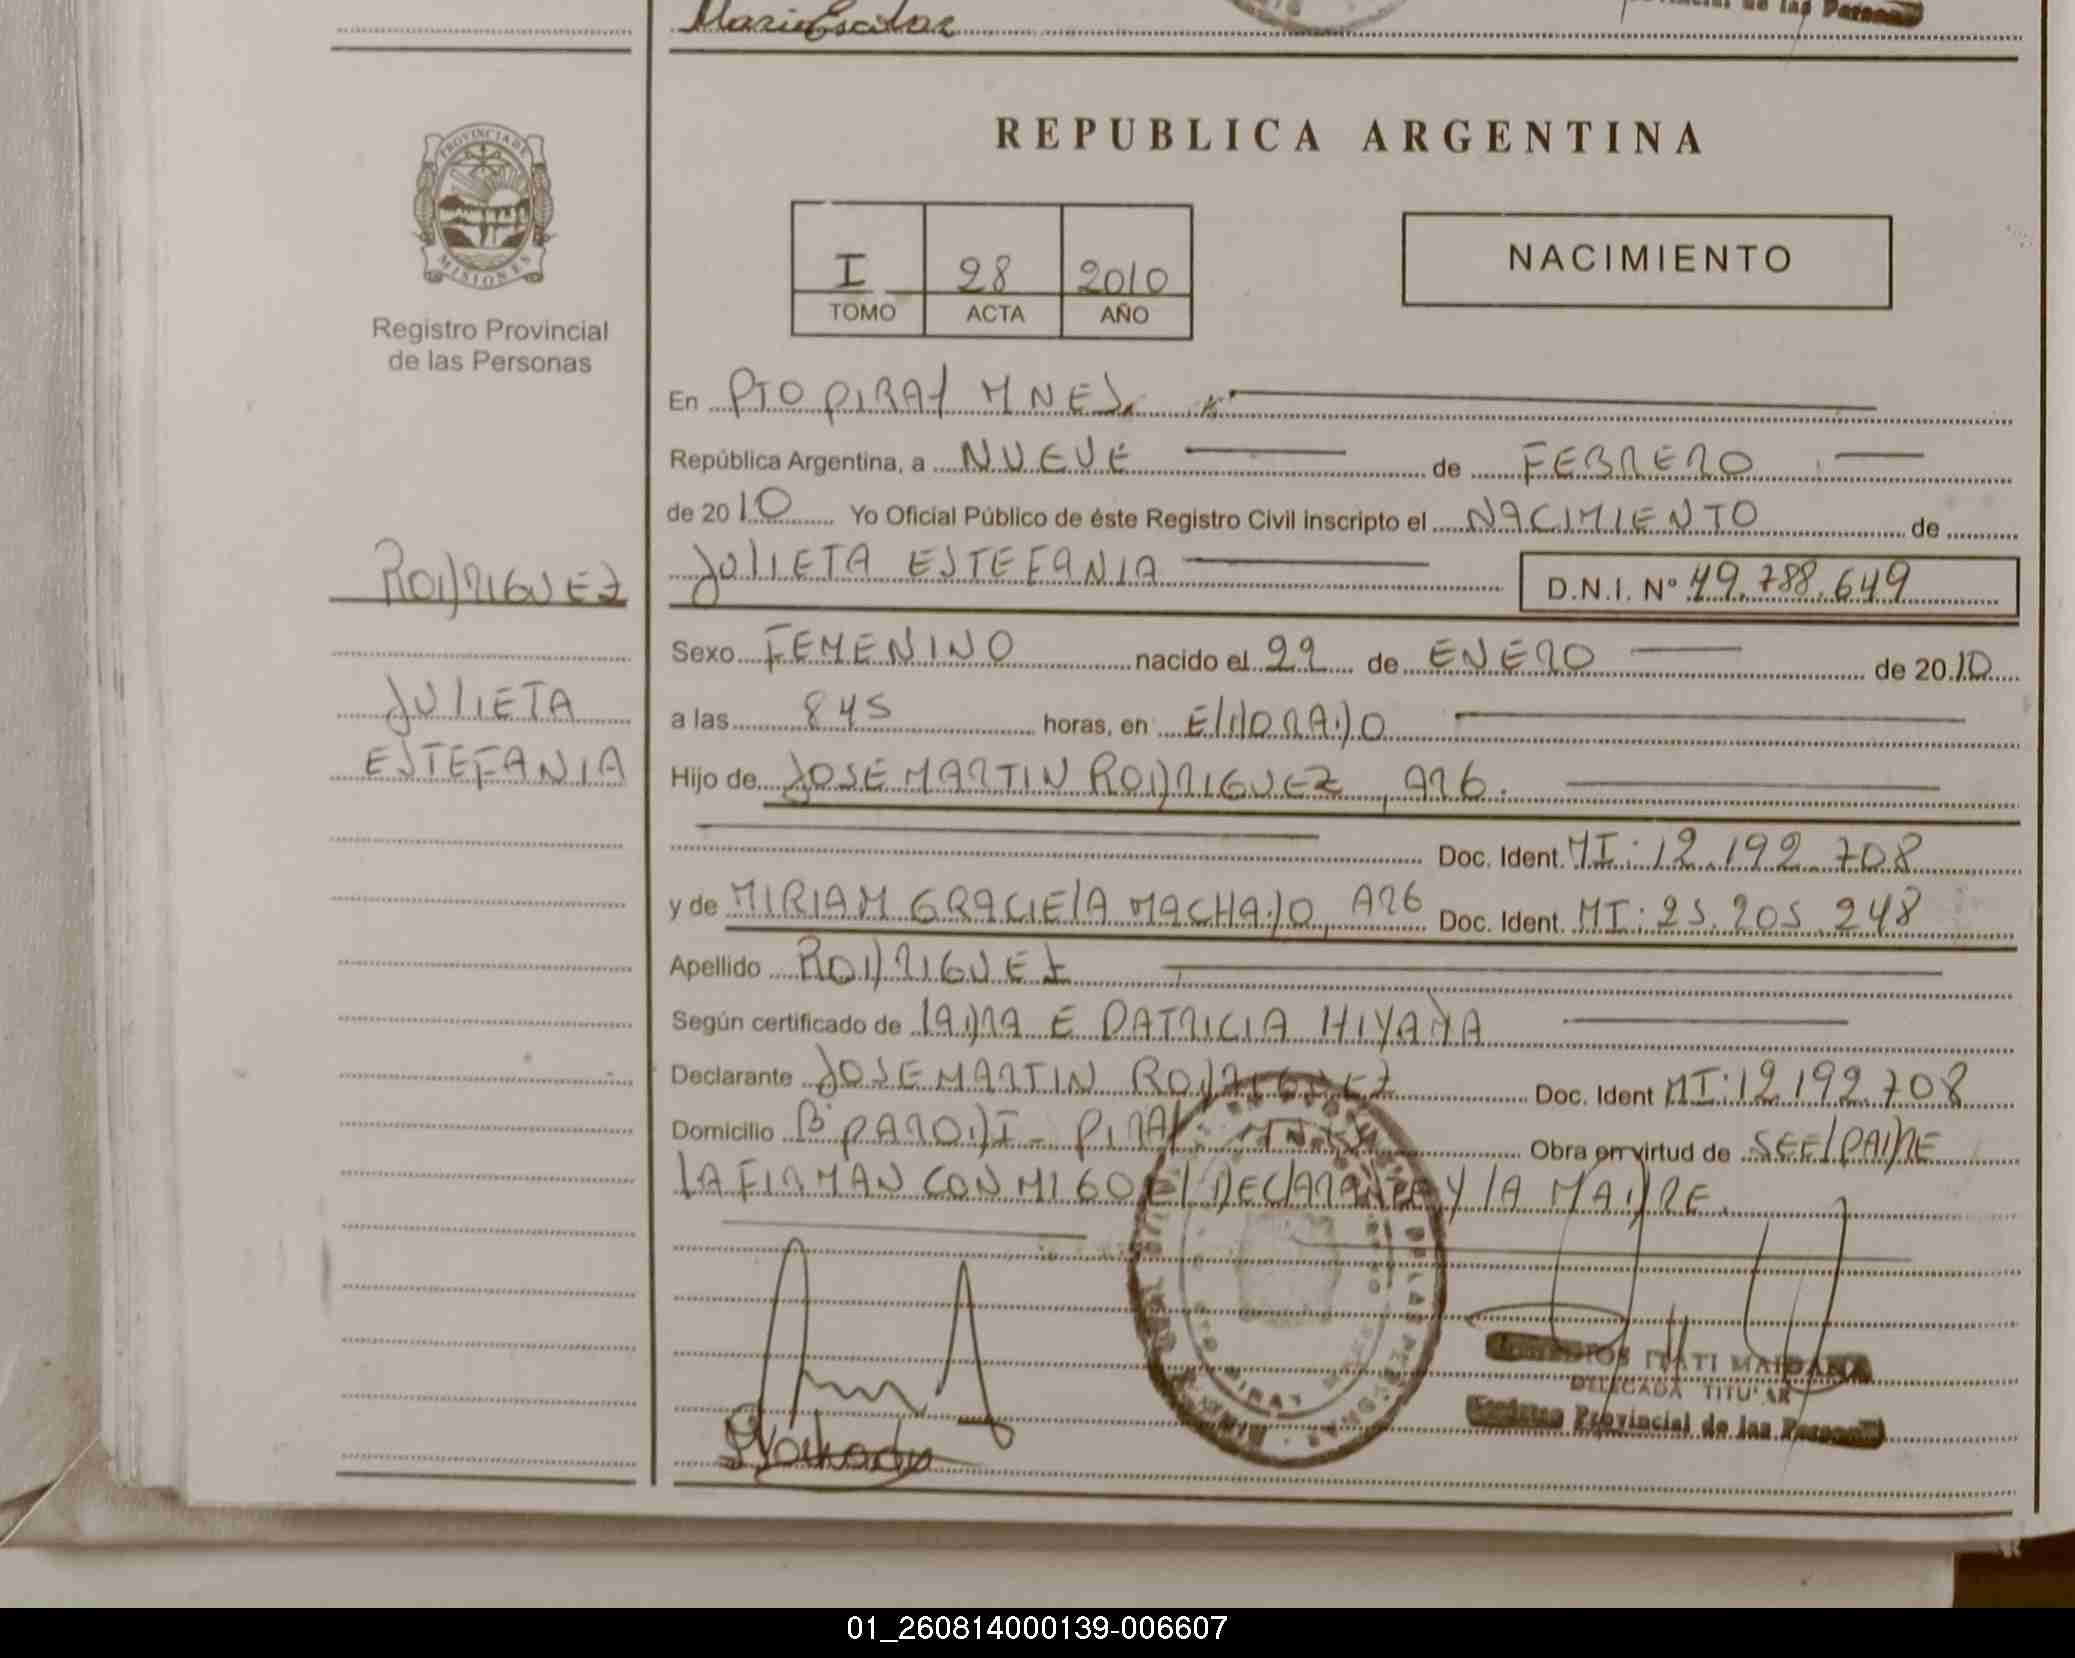 Mario Escobar
PROVINCIA DE
MISIONES
Registro Provincial
de las Personas
REPUBLICA ARGENTINA
I 28 2010
TOMO ACTA AÑO
NACIMIENTO
En PTO PIRAY MNES.
República Argentina, a NUEVE de FEBRERO
de 2010 Yo Oficial Público de éste Registro Civil inscripto el NACIMIENTO de
RODRIGUEZ
JULIETA ESTEFANIA D.N.I. Nº 49.788.649
Sexo FEMENINO nacido el 22 de ENERO de 2010
JULIETA
ESTEFANIA
a las 845 horas, en ELDORADO
Hijo de JOSE MARTIN RODRIGUEZ, ARG.
Doc. Ident. MI: 12.192.708
y de MIRIAM GRACIELA MACHADO, ARG Doc. Ident. MI: 25.205.248
Apellido RODRIGUEZ
Según certificado de LA DRA E PATRICIA HIYAMA
Declarante JOSE MARTIN RODRIGUEZ Doc. Ident MI: 12.192.708
Domicilio Bº PARODI - PIRAY Obra en virtud de SER EL PADRE
LA FIRMAN CON MIGO EL DECLARANTE Y LA MADRE.
ITATI MAIDANA
DELEGADA TITULAR
Registro Provincial de las Personas
Machado
01_260814000139-006607